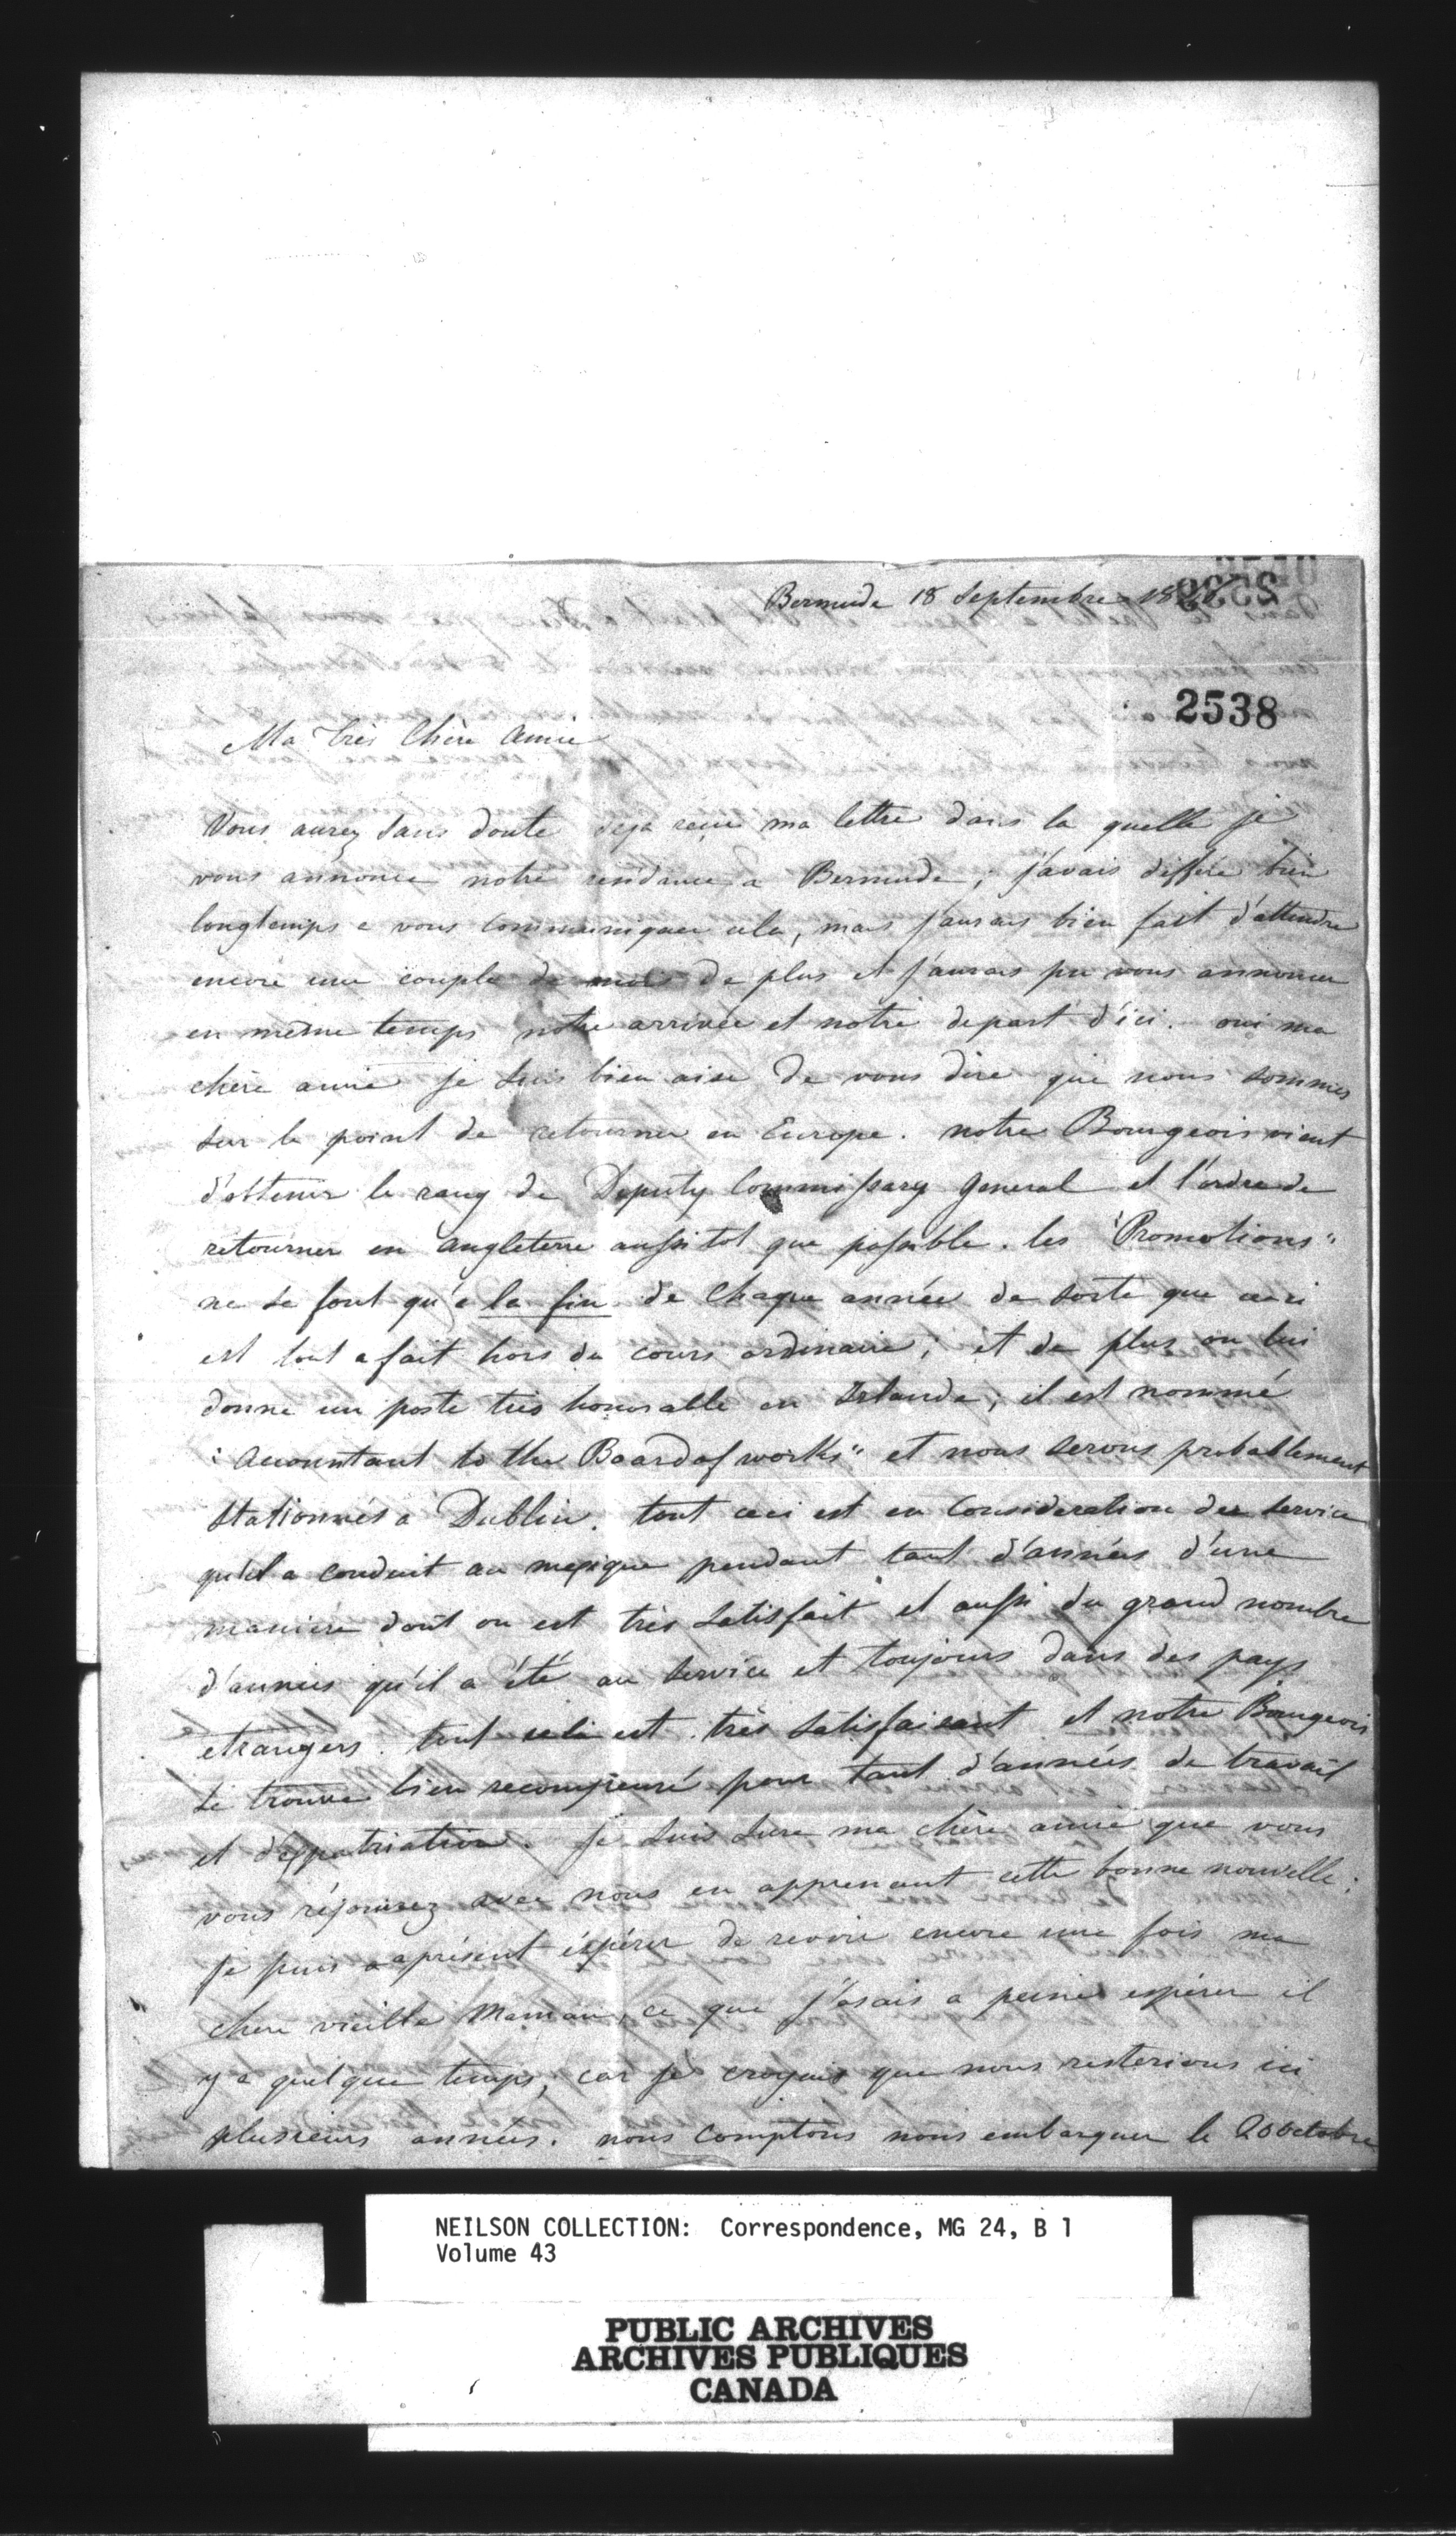 Bermude 18 Septembre
2538
Ma très Chère Amie
Vous aurez sans doute deja reçue ma lettre dans la quelle je
vous annonce notre residance a Bermude ; j'avais differé bien
longtemps a vous communiquer cela, mais j'aurais bien fait d'attendre
encore une couple de mois de plus et j'aurais pu vous annoncer
en même temps notre arrivée et notre depart d'ici. oui ma
chère amie je suis bien aise de vous dire que nous sommes
sur le point de retourner en Europe. notre Bourgeois vient
d'obtenir le rang de Deputy Commissary General et l'ordre de
retourner en Angleterre aussitot que possible. les "Promotions"
ne se font qu'a la fin de chaque année de sorte que ceci
est tout a fait hors du cours ordinaire ; et de plus on lui
donne un poste très honorable en Irlande ; il est nommé
"Accountant to the Board of works" et nous serons probablement
stationnés a Dublin. tout ceci est en Consideration des service
qu'il a conduit au mexique pendant tant d'années d'une
maniere dont on est très satisfait et aussi du grand nombre
d'annees qu'il a été au service et toujours dans des pays
etrangers. tout cela est très satisfaisant et notre Bourgeois
se trouve bien recompensé pour tant d'années de travail
et d'expatriation. Je suis sure ma chère amie que vous
vous réjouirez avec nous en apprenant cette bonne nouvelle ;
je puis a présent éspérer de revoir encore une fois ma
chere vieille Maman, ce que j'osais a peine espérer il
y a quelque temps, car je croyais que nous resterions ici
plusieurs années. nous comptons nous embarquer le 20 octobre
NEILSON COLLECTION: Correspondence, MG 24, B 1
Volume 43
PUBLIC ARCHIVES
ARCHIVES PUBLIQUES
CANADA